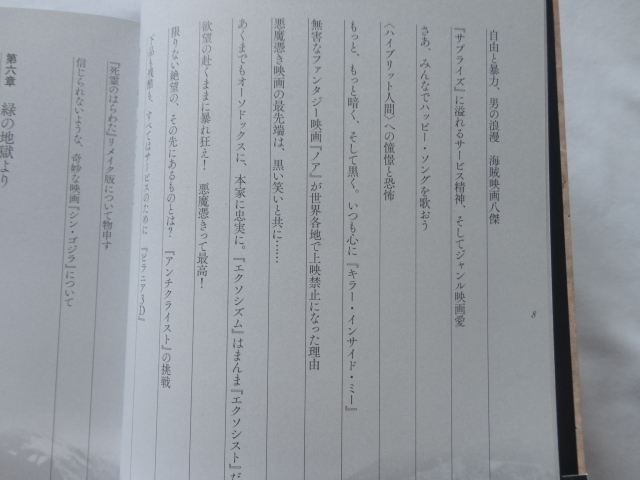 8
自由と暴力、男の浪漫　海賊映画八傑
『サプライズ』に溢れるサービス精神、そしてジャンル映画愛
さあ、みんなでハッピー・ソングを歌おう
〈ハイブリット人間〉への憧憬と恐怖
もっと、もっと暗く、そして黒く。いつも心に『キラー・インサイド・ミー』
無害なファンタジー映画『ノア』が世界各地で上映禁止になった理由
悪魔憑き映画の最先端は、黒い笑いと共に……
あくまでもオーソドックスに、本家に忠実に。『エクソシズム』はまんま『エクソシスト』だ
欲望の赴くままに暴れ狂え！　悪魔憑きって最高！
限りない絶望の、その先にあるものとは？『アンチクライスト』の挑戦
すべてはサービスのために『ピラニア3D』
『死霊のはらわた』リメイク版について物申す
信じられないような、奇妙な映画『シン・ゴジラ』について
第六章　緑の地獄より